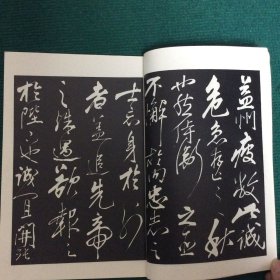 益州疲敝此誠
危急存亡之秋
也然侍衛之臣
不懈於内忠志之
士忘身於外
者蓋追先帝
之殊遇欲報之
於陛下也誠宜開張